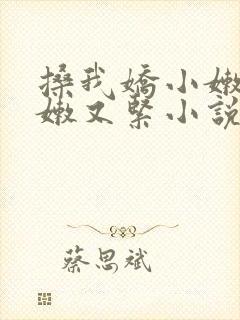 搡我嬌小嫩
嫩又緊小說
蔡思斌